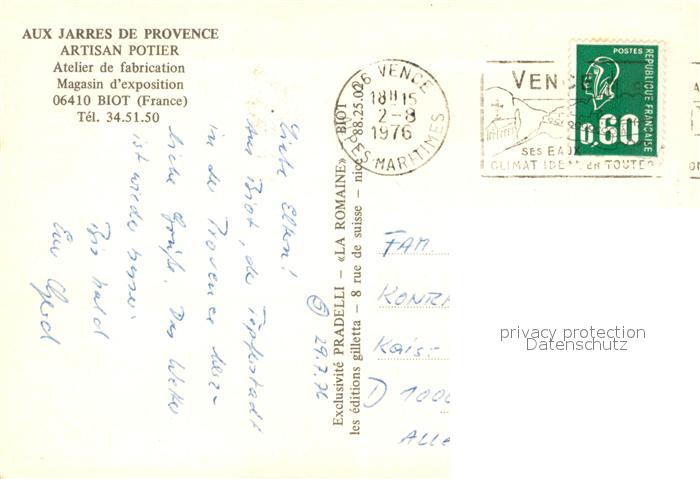 AUX JARRES DE PROVENCE
ARTISAN POTIER
Atelier de fabrication
Magasin d'exposition
06410 BIOT (France)
Tél. 34.51.50
26 VENCE
18H15
2-8
1976
ALPES-MARITIMES
VENCE
SES EAUX
CLIMAT IDEAL EN TOUTES
POSTES
RÉPUBLIQUE FRANÇAISE
0,60
Exclusivité PRADELLI – «LA ROMAINE» BIOT
les éditions gilletta – 8 rue de suisse – nice 88.25.02
29.7.76
Liebe Eltern!
Aus Biot, der Töpferstadt
in der Provence herz-
liche Grüße. Das Wetter
ist wieder besser.
Bis bald
Euer Gerd
FAM.
KONRA
Kais-
D 1000
ALLE
privacy protection
Datenschutz